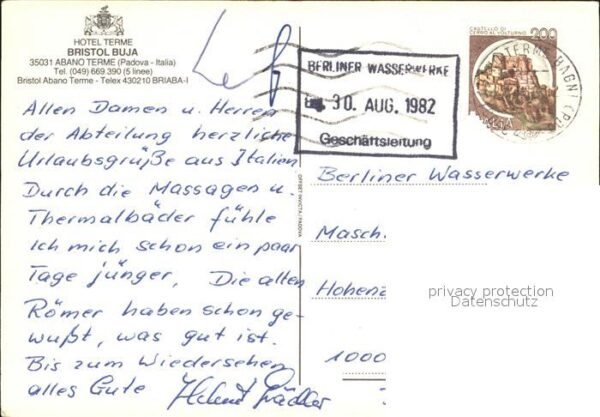 HOTEL TERME
BRISTOL BUJA
35031 ABANO TERME (Padova - Italia)
Tel. (049) 669 390 (5 linee)
Bristol Abano Terme - Telex 430210 BRIABA-I
Allen Damen u. Herren
der Abteilung herzliche
Urlaubsgrüße aus Italien
Durch die Massagen u.
Thermalbäder fühle
ich mich schon ein paar
Tage jünger, Die alten
Römer haben schon ge-
wußt, was gut ist.
Bis zum Wiedersehen
alles Gute Helmut
OFFSET INVICTA - PADOVA
BERLINER WASSERWERKE
30. AUG. 1982
Geschäftsleitung
CASTELLO DI
CERRO AL VOLTURNO
200
ITALIA
TERME
Berliner Wasserwerke
Masch.
Hohenz
1000
privacy protection
Datenschutz